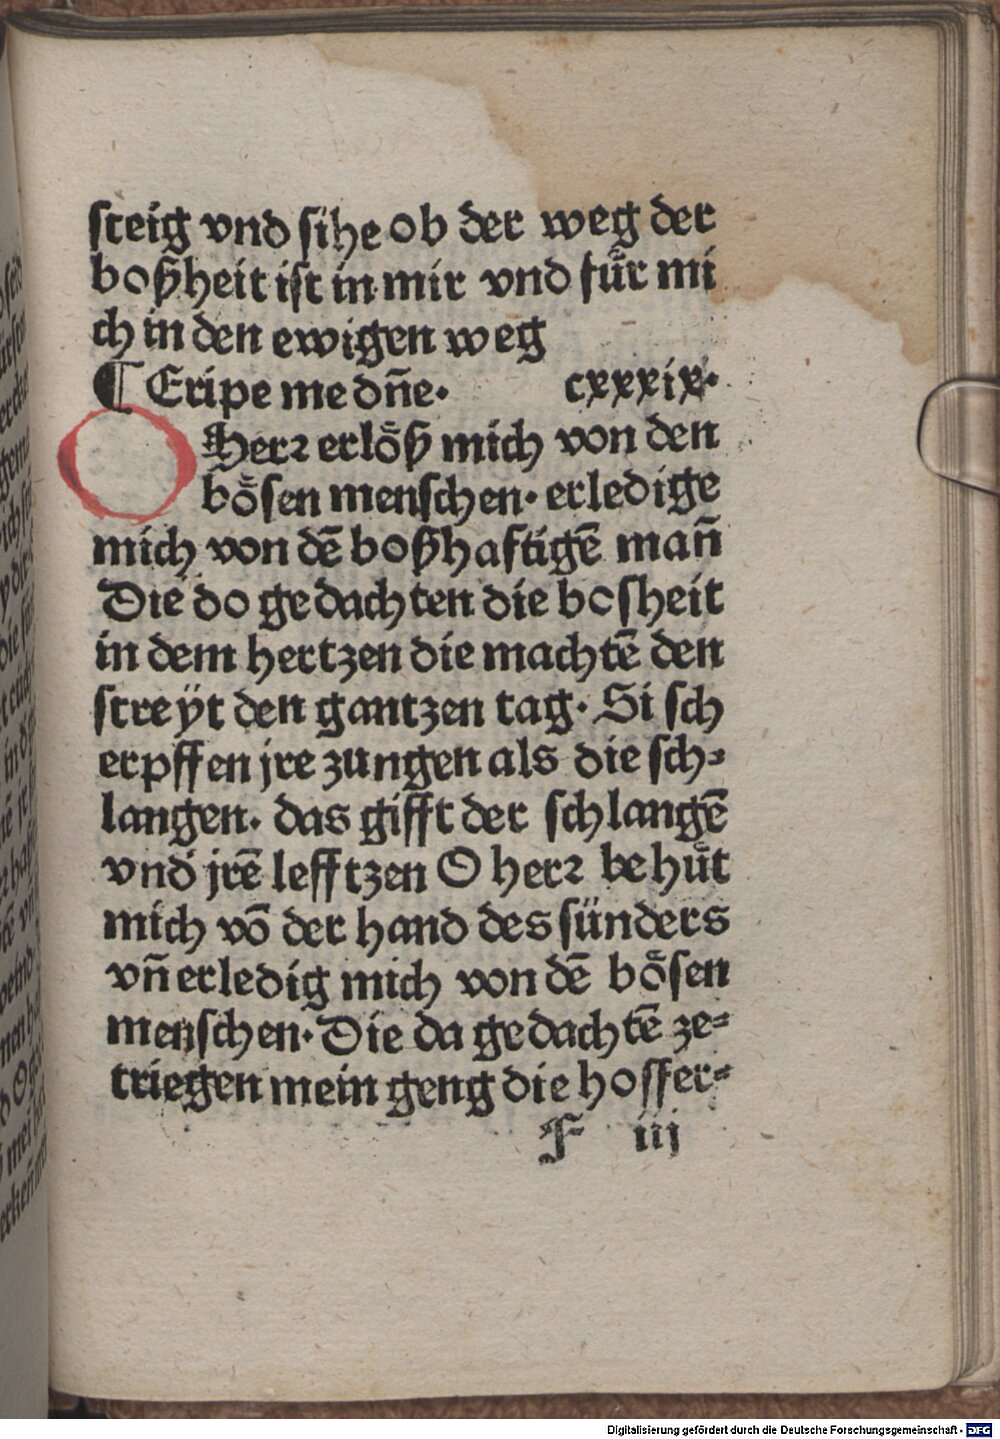 steig vnd sihe ob der weg der
boßheit ist in mir vnd fuͤr mi
ch in den ewigen weg
¶ Eripe me dn̄e. cxxxix.
O Herr erloͤß mich von den
boͤsen menschen. erledige
mich von dē boßhaftigē man̄
Die do gedachten die bosheit
in dem hertzen die machtē den
streÿt den gantzen tag. Si sch
erpffen jre zungen als die sch⸗
langen. das gifft der schlangē
vnd jrē lefftzen O herr behuͤt
mich vō der hand des sünders
vn̄ erledig mich von dē boͤsen
menschen. Die da gedachtē ze⸗
triegen mein geng die hoffer⸗
F iij
Digitalisierung gefördert durch die Deutsche Forschungsgemeinschaft - DFG